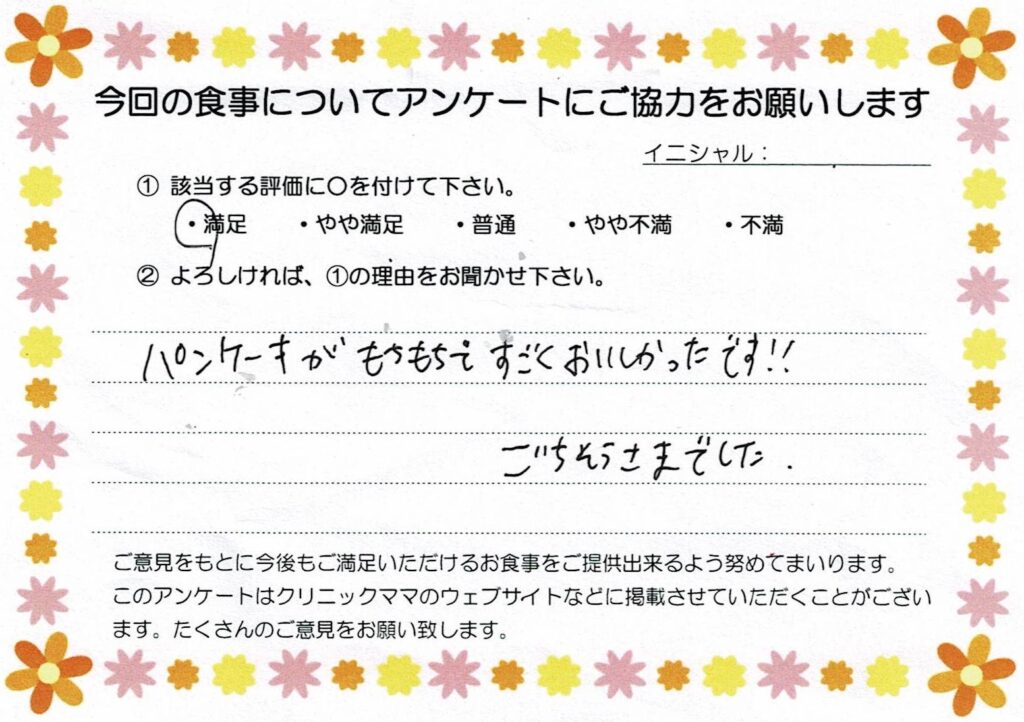 今回の食事についてアンケートにご協力をお願いします
イニシャル：
① 該当する評価に○を付けて下さい。
・満足 ・やや満足 ・普通 ・やや不満 ・不満
② よろしければ、①の理由をお聞かせ下さい。
パンケーキが もちもちで すごくおいしかったです!!
ごちそうさまでした.
ご意見をもとに今後もご満足いただけるお食事をご提供出来るよう努めてまいります。
このアンケートはクリニックママのウェブサイトなどに掲載させていただくことがござい
ます。たくさんのご意見をお願い致します。